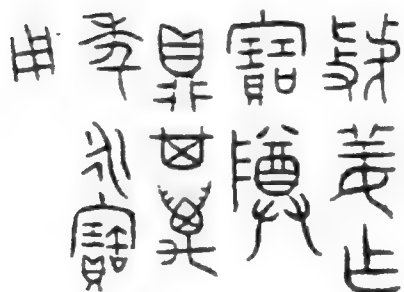 姜乍
寶尊
鼎其萬
年永寶
用